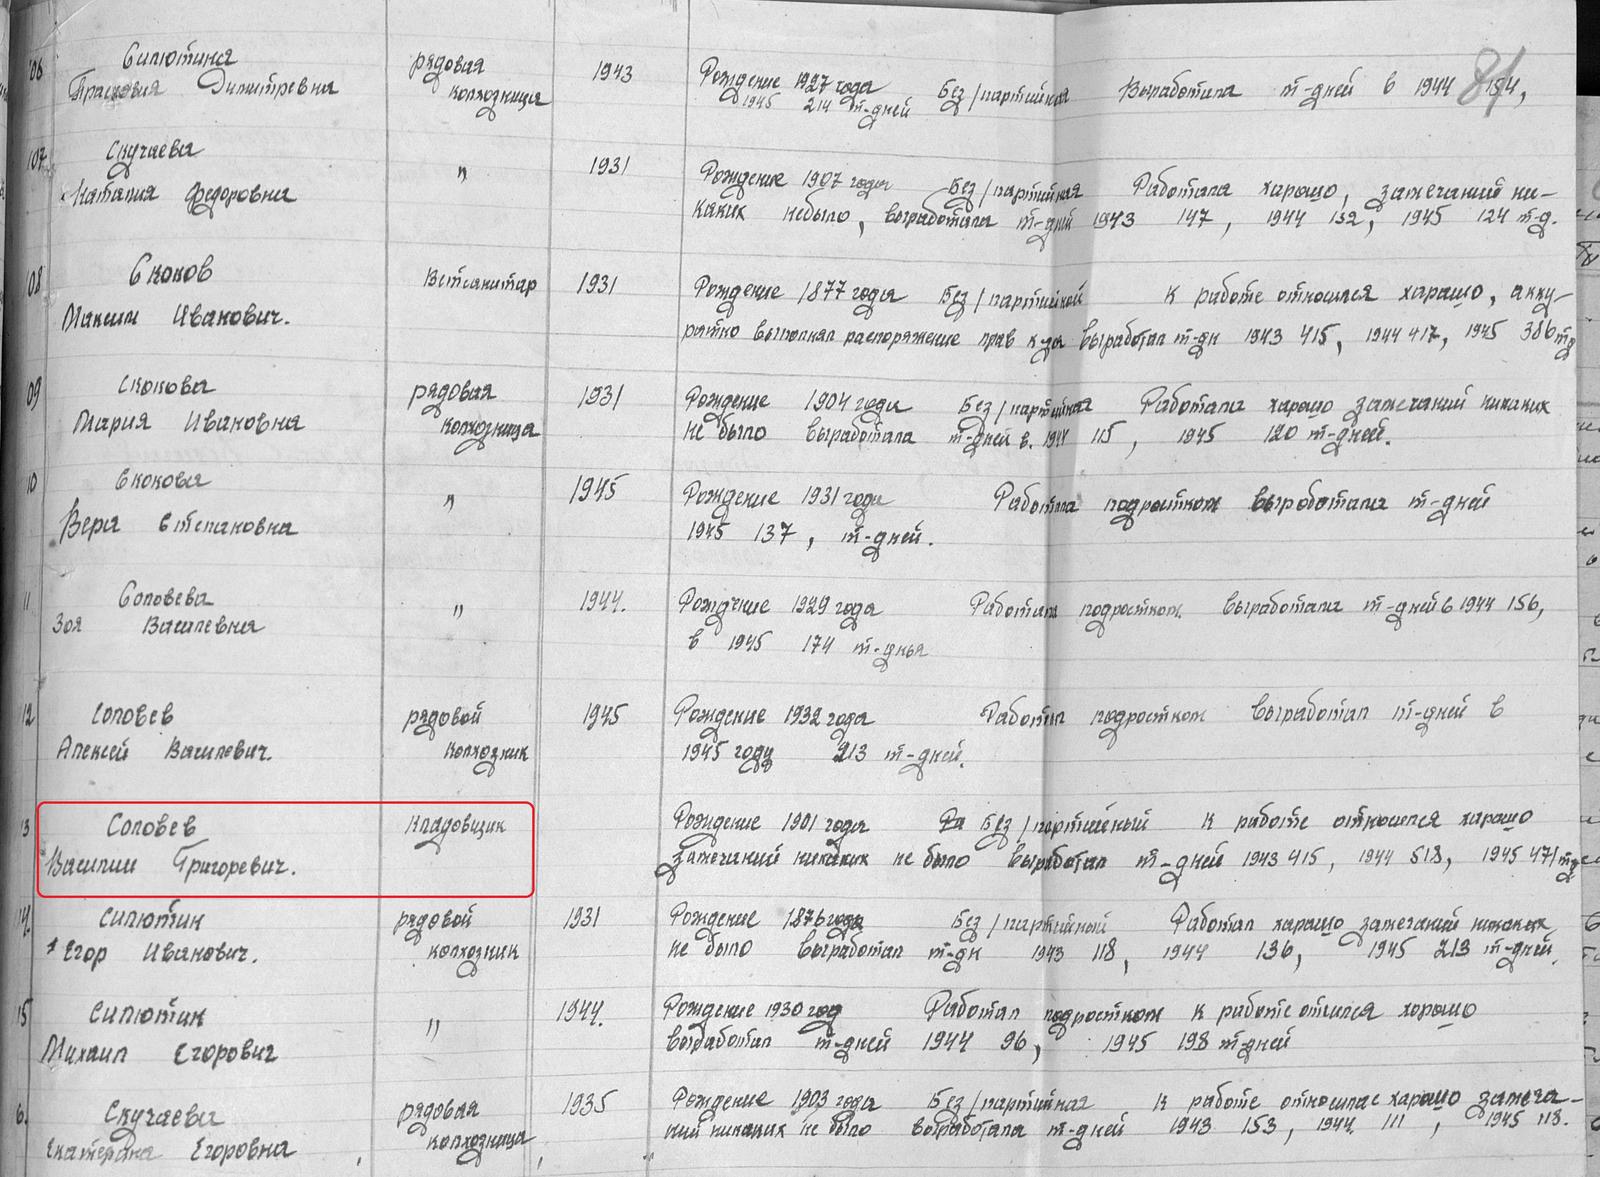 81
106 Силютина рядовая 1943 Рождение 1927 года Без/партийная Выработала т-дней в 1944 154,
Прасковия Димитревна колхозница 1945 214 т-дней
107 Скучаева " 1931 Рождение 1907 года Без/партийная Работала харошо, замечаний ни-
Наталия Федоровна каких небыло, выработала т-дней 1943 147, 1944 132, 1945 124 т-д.
108 Скоков Ветсанитар 1931 Рождение 1877 года Без/партийной К работе относился харошо, акку-
Максим Иванович. ратно выполнял распоряжение прав к-за выработал т-дн 1943 415, 1944 417, 1945 386 тд
09 Скокова рядовая 1931 Рождение 1904 года Без/партийная Работала харошо замечаний никаких
Мария Ивановна колхозница не было выработала т-дней в. 1944 115, 1945 120 т-дней.
10 Скокова " 1945 Рождение 1931 года Работала подростком выработала т-дней
Вера Степановна 1945 137, т-дней.
11 Соловева " 1944. Рождение 1929 года Работала подростком выработала т-дней в 1944 156,
Зоя Василевна в 1945 174 т-дня
12 Соловев рядовой 1945 Рождение 1932 года Работал подростком выработал т-дней в
Алексей Василевич. колхозник 1945 году 213 т-дней.
13 Соловев Кладовщик Рождение 1901 года Ра Без/партийный К работе относился харошо
Василии Григоревич. замечаний никаких не было выработал т-дней 1943 415, 1944 518, 1945 471 тд
14. Силютин рядовой 1931 Рождение 1876 года Без/партийный Работал харошо замечаний никаких
Егор Иванович. колхозник не было выработал т-дн 1943 118, 1944 136, 1945 213 т-дней.
15 Силютин " 1944. Рождение 1930 год Работал подростком к работе отнсился харошо
Михаил Егорович выработал т-дней 1944 96, 1945 198 т-дней
6. Скучаева рядовая 1935 Рождение 1903 года Без/партийная К работе относилас харошо замеча-
Екатерина Егоровна колхозница ний никаких не было выработала т-дней 1943 153, 1944 111, 1945 118.